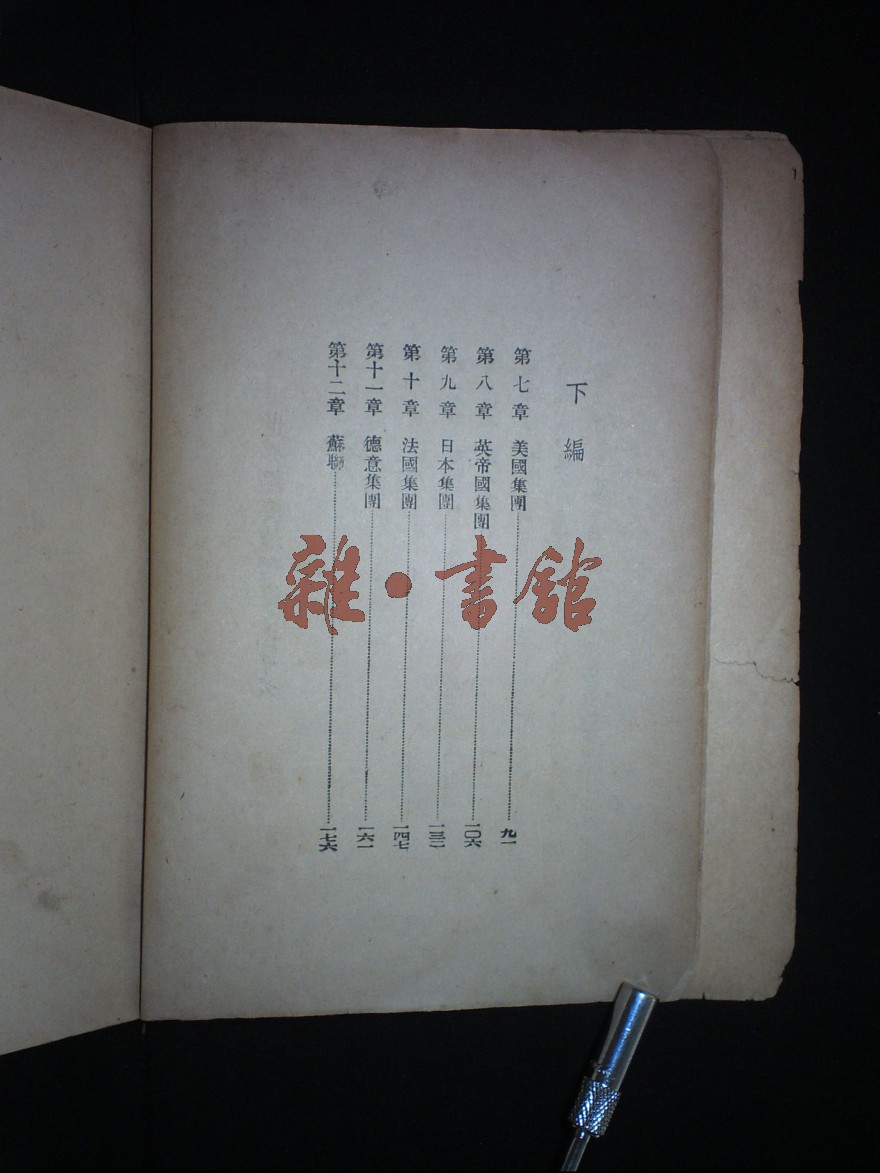 下編
第七章 美國集團……九一
第八章 英帝國集團……一〇六
第九章 日本集團……一三二
第十章 法國集團……一四七
第十一章 德意集團……一六一
第十二章 蘇聯……一七六
雜·書館